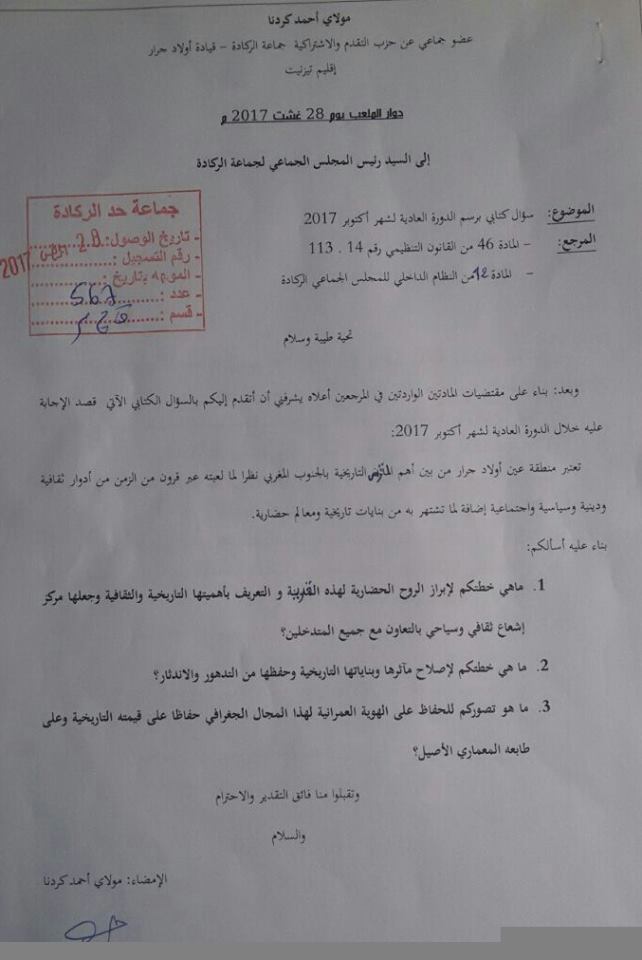 مولاي أحمد كردنا
عضو جماعي عن حزب التقدم والاشتراكية جماعة الركادة – قيادة أولاد جرار
إقليم تيزنيت
دوار الملعب يوم 28 غشت 2017 م
إلى السيد رئيس المجلس الجماعي لجماعة الركادة
جماعة حد الركادة
- تاريخ الوصول: 28 غشت 2017
- رقم التسجيل :
- الموجه بتاريخ :
- عدد : 567
- قسم :
الموضوع: سؤال كتابي برسم الدورة العادية لشهر أكتوبر 2017
المرجع: – المادة 46 من القانون التنظيمي رقم 14 . 113
– المادة 12 من النظام الداخلي للمجلس الجماعي الركادة
تحية طيبة وسلام
وبعد: بناء على مقتضيات المادتين الواردتين في المرجعين أعلاه يشرفني أن أتقدم إليكم بالسؤال الكتابي الآتي قصد الإجابة
عليه خلال الدورة العادية لشهر أكتوبر 2017:
تعتبر منطقة عين أولاد جرار من بين أهم التاريخية بالجنوب المغربي نظرا لما لعبته عبر قرون من الزمن من أدوار ثقافية
ودينية وسياسية واجتماعية إضافة لما تشتهر به من بنايات تاريخية ومعالم حضارية.
بناء عليه أسألكم:
1. ماهي خطتكم لإبراز الروح الحضارية لهذه القرية و التعريف بأهميتها التاريخية والثقافية وجعلها مركز
إشعاع ثقافي وسياحي بالتعاون مع جميع المتدخلين؟
2. ما هي خطتكم لإصلاح مآثرها وبناياتها التاريخية وحفظها من التدهور والاندثار؟
3. ما هو تصوركم للحفاظ على الهوية العمرانية لهذا المجال الجغرافي حفاظا على قيمته التاريخية وعلى
طابعه المعماري الأصيل؟
وتقبلوا منا فائق التقدير والاحترام
والسلام
الإمضاء: مولاي أحمد كردنا